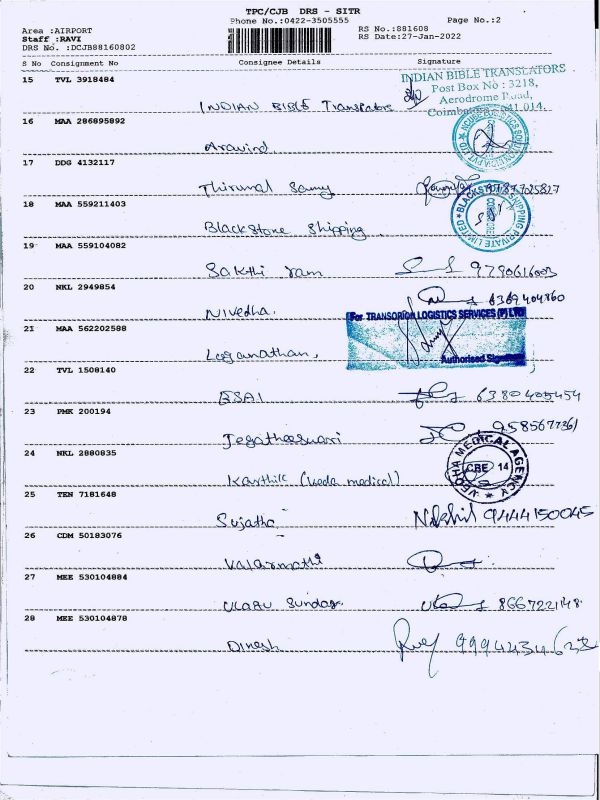 TPC/CJB DRS - SITR
Phone No.:0422-3505555
Page No.:2
Area :AIRPORT
Staff :RAVI
DRS No. :DCJB88160802
RS No.:881608
RS Date:27-Jan-2022
S No Consignment No Consignee Details Signature
15 TVL 3918484
INDIAN BIBLE Translators
INDIAN BIBLE TRANSLATORS
Post Box No : 3218,
Aerodrome Road,
16 MAA 286895892
Aravind
17 DDG 4132117
Thirumal Samy
18 MAA 559211403
Blackstone Shipping
BLACKSTONE SHIPPING PRIVATE LIMITED
19 MAA 559104082
Sakthi ram 9790616003
20 NKL 2949854
Nivedha. 6369404860
21 MAA 562202588
Loganathan,
For TRANSORION LOGISTICS SERVICES (P) LTD
Authorised Signatory
22 TVL 1508140
ESAI 6380405454
23 PMK 200194
Jegatheeswari
24 NKL 2880835
Karthik (Veda medical)
VEDHA MEDICAL AGENCY
CBE 14
25 TEN 7181648
Sujatha Nikhil 9444150045
26 CDM 50183076
Valarmathi
27 MEE 530104884
Ulagu Sundar. 8667221148
28 MEE 530104878
Dinesh